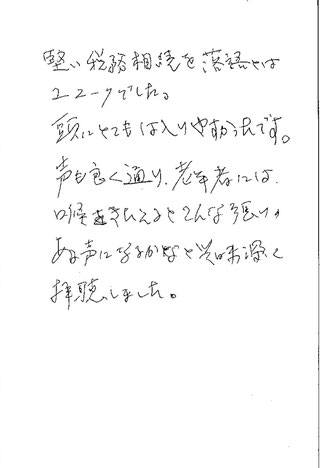 堅い税務相続を落語とは
ユニークでした。
頭にとてもは入りやすかったです。
声も良く通り、老年者には、
喉をきたえるとこんな張りの
ある声になるかなと興味深く
拝聴しました。